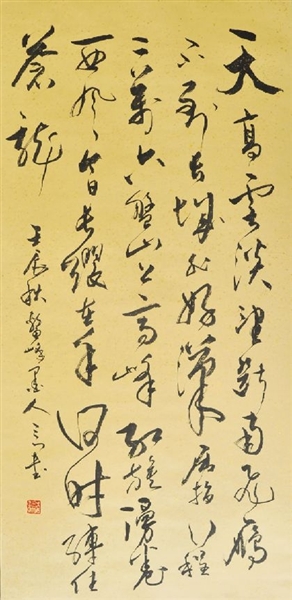 天高雲淡望斷南飛雁
不到長城非好漢屈指行程
二萬六盤山上高峰紅旗漫卷
西風今日長纓在手何時縛住
蒼龍
壬辰秋鰲峰墨人書